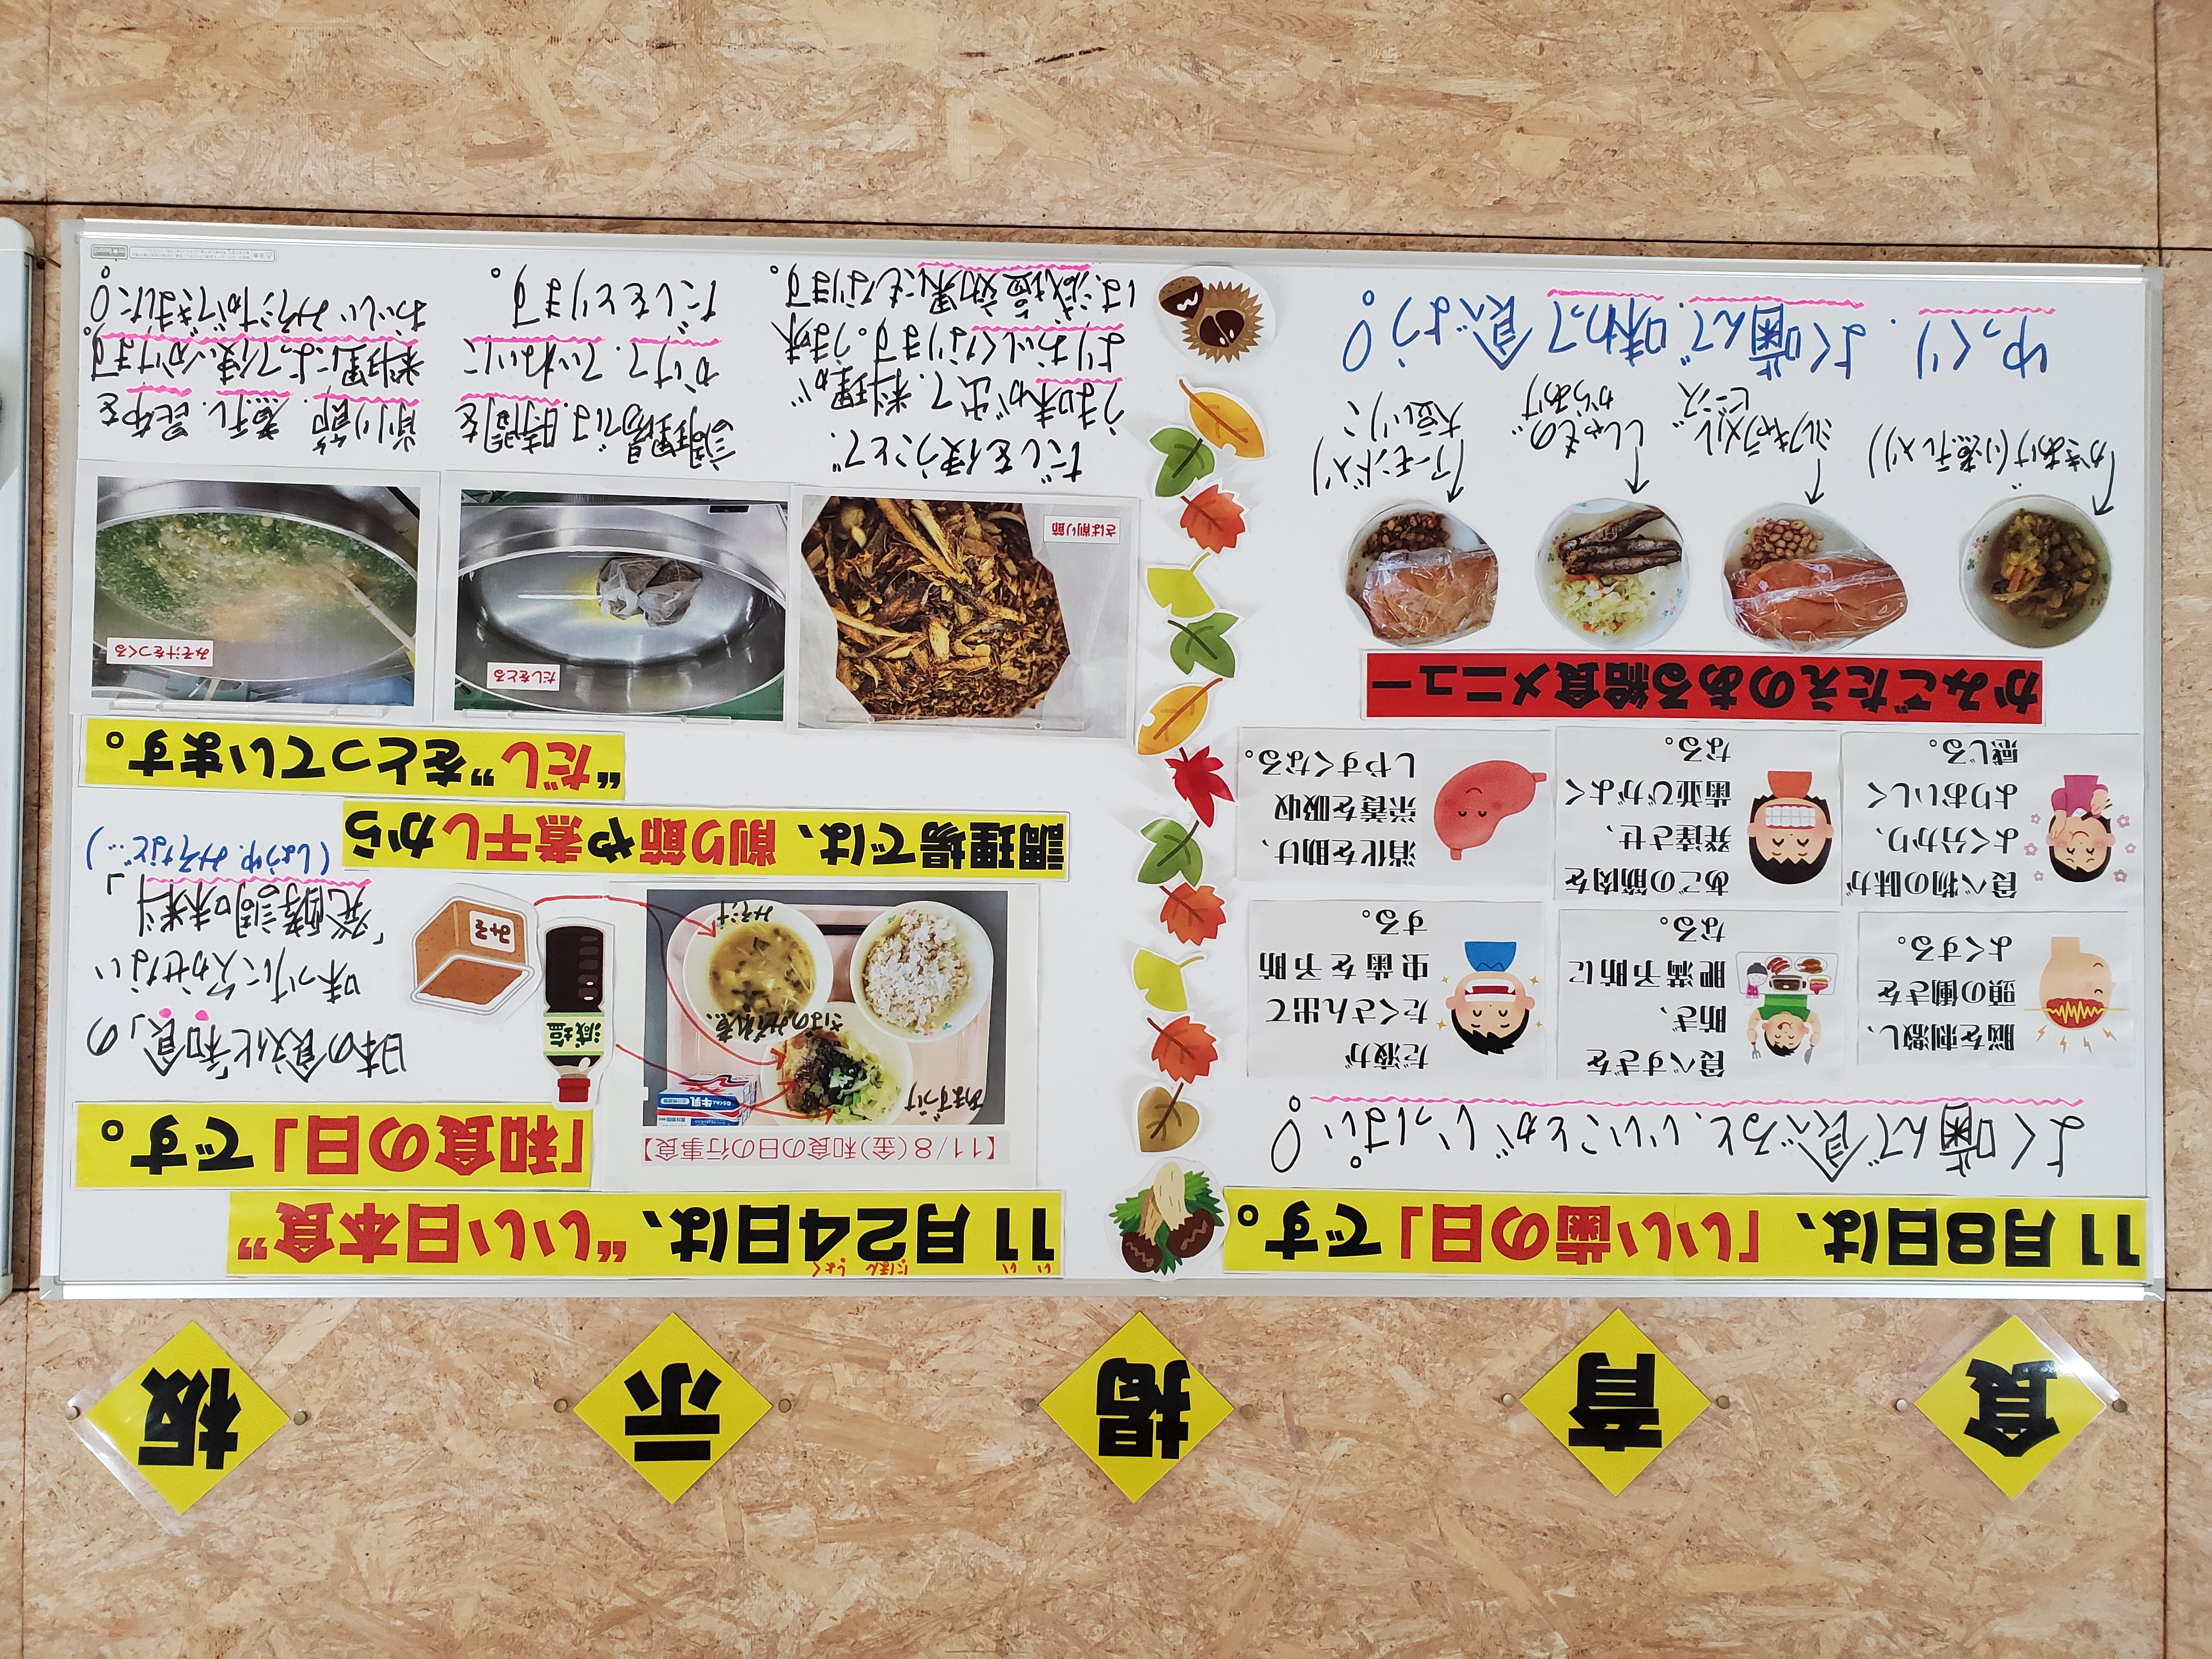 食育掲示板
11月8日は、「いい歯の日」です。
よく噛んで食べると、いいことがいっぱい。
脳を刺激し、
頭の働きを
よくする。
食べすぎを
防ぎ、
肥満予防に
なる。
だ液が
たくさん出て
虫歯を予防
する。
食べ物の味が
よく分かり、
よりおいしく
感じる。
あごの筋肉を
発達させ、
歯並びがよく
なる。
消化を助け、
栄養を吸収
しやすくなる。
かみごたえのある給食メニュー
かきあげ(小煮干し入り)
ミルクキャラメル
ビーンズ
ししゃもの
からあげ
(アーモンド入り)
大豆いりこ
ゆっくり、よく噛んで、味わって食べよう。
いい にほん しょく
11月24日は、“いい日本食”
「和食の日」です。
【11/8(金)和食の日の行事食】
あまずづけ
さばのみぞれ煮
みそ汁
牛乳
減塩
みそ
日本の食文化「和食」の
味つけに欠かせない
「発酵調味料」
(しょうゆ、みそなど…)
調理場では、削り節や煮干しから
“だし”をとっています。
さば削り節
だしをとる
みそ汁をつくる
だしを使うことで、
うま味が出て、料理が
よりおいしくなります。うま味
は、減塩効果にもなります。
調理場では、時間を
かけて、ていねいに
だしをとります。
削り節、煮干し、昆布を
料理によって使い分けます。
おいしいみそ汁ができました。